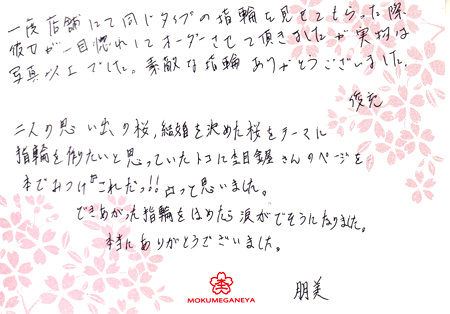 一度店舗にて同じタイプの指輪を見せてもらった際
彼女が一目惚れしてオーダーさせて頂きましたが実物は
写真以上でした。素敵な指輪ありがとうございました。
俊充
二人の思い出の桜、結婚を決めた桜をテーマに
指輪を作りたいと思っていたトコに杢目金屋さんのページを
本でみつけ"これだっ!!"って思いました。
できあがった指輪をはめたら涙がでそうになりました。
本当にありがとうございました。
朋美
MOKUMEGANEYA